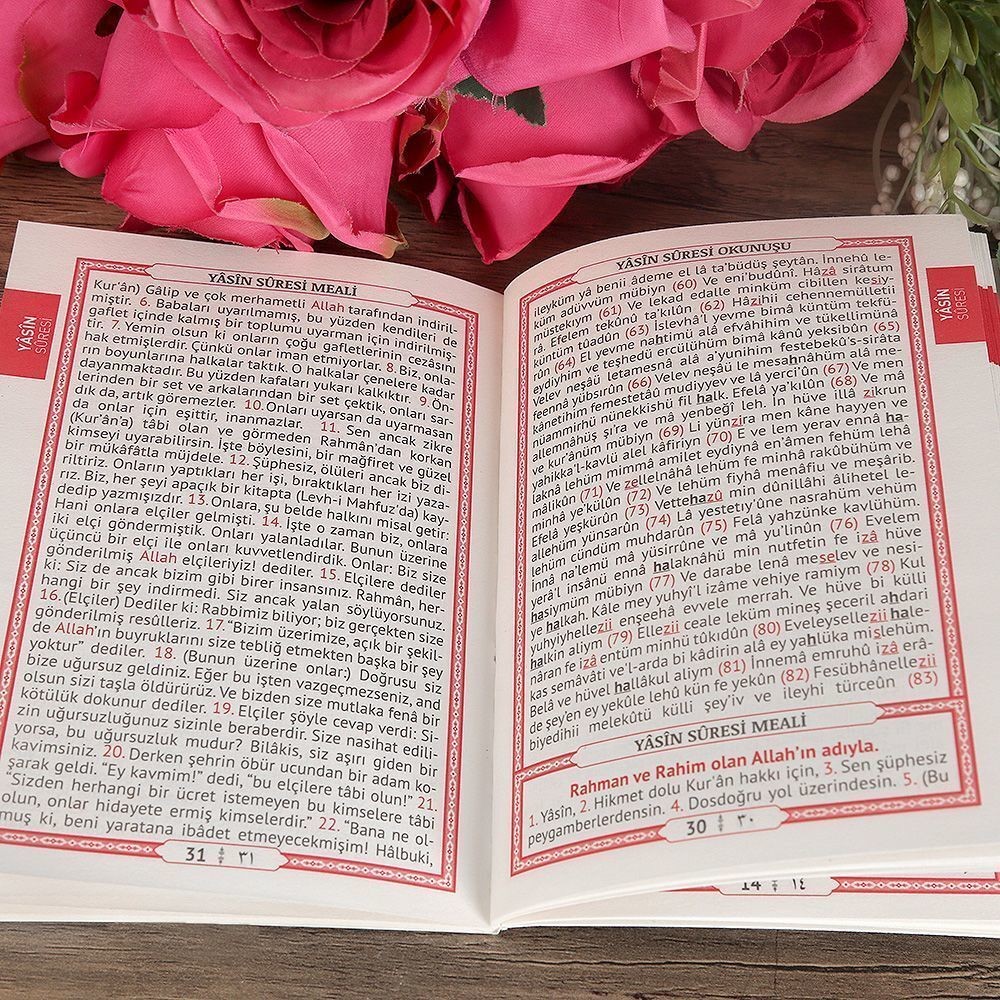 YÂSÎN SÛRESİ OKUNUŞU
ileyküm yâ benii âdeme el lâ ta'büdüş şeytân. İnnehû le-
küm adüvvüm mübiyn (60) Ve eni'budûnî. Hâzâ sirâtum
müstekıym (61) Ve lekad edalle minküm cibillen kesiy-
râ. Efelem tekûnû ta'kılûn (62) Hâzihii cehennemülletii
küntüm tûadûn (63) İslevhâ'l yevme bimâ küntüm tekfü-
rûn (64) El yevme nahtimü alâ efvâhihim ve tükellimünâ
eydiyhim ve teşhedü ercülühüm bimâ kânû yeksibûn (65)
Velev neşâü letamesnâ alâ a'yunihim festebekû's-sirâta
feennâ yübsirûn (66) Velev neşâü le mesahnâhüm alâ me-
kânetihim femestetâû mudiyyev ve lâ yerci'ûn (67) Ve men
nüammirhü nünekkishü fil halk. Efelâ ya'kılûn (68) Ve mâ
allemnâhüş şi'ra ve mâ yenbeğî leh. İn hüve illâ zikrun
ve kur'ânüm mübiyn (69) Li yünzira men kâne hayyen ve
yahikka'l-kavlü alel kâfiriyn (70) E ve lem yerav ennâ ha-
laknâ lehüm mimmâ amilet eydiynâ en'âmen fehüm lehâ
mâlikûn (71) Ve zellelnâhâ lehüm fe minhâ rakûbühüm ve
minhâ ye'külûn (72) Ve lehüm fiyhâ menâfiu ve meşârib.
Efelâ yeşkürûn (73) Vettehazû min dûnillâhi âlihetel le-
allehüm yünsarûn (74) Lâ yestetıy'ûne nasrahüm vehüm
lehüm cündüm muhdarûn (75) Felâ yahzünke kavlühüm.
İnnâ na'lemü mâ yüsirrûne ve mâ yu'linûn (76) Evelem
yerâ'l insânü ennâ halaknâhü min nutfetin fe izâ hüve
hasiymüm mübiyn (77) Ve darabe lenâ meselev ve nesi-
ye halkah. Kâle mey yuhyi'l izâme vehiye ramiym (78) Kul
yuhyiyhellezii enşeehâ evvele merrah. Ve hüve bi külli
halkin aliym (79) Ellezii ceale leküm mineş şeceril ahdari
nâran fe izâ entüm minhü tûkıdûn (80) Eveleysellezii hale-
kas semâvâti ve'l-arda bi kâdirin alâ ey yahlüka mislehüm.
Belâ ve hüvel hallâkul aliym (81) İnnemâ emruhû izâ erâ-
de şey'en ey yekûle lehû kün fe yekûn (82) Fesübhânellezii
biyedihii melekûtü külli şey'iv ve ileyhi türceûn (83)
YÂSÎN SÛRESİ MEALİ
Rahman ve Rahim olan Allah'ın adıyla.
1. Yâsîn, 2. Hikmet dolu Kur'ân hakkı için, 3. Sen şüphesiz
peygamberlerdensin. 4. Dosdoğru yol üzerindesin. 5. (Bu
30 ٣٠
YÂSÎN
SÛRESİ
14 ١٤
YÂSÎN SÛRESİ MEALİ
Kur'ân) Gâlip ve çok merhametli Allah tarafından indiril-
miştir. 6. Babaları uyarılmamış, bu yüzden kendileri de
gaflet içinde kalmış bir toplumu uyarman için indirilmiş-
tir. 7. Yemin olsun ki onların çoğu gafletlerinin cezâsını
hak etmişlerdir. Çünkü onlar iman etmiyorlar. 8. Biz, onla-
rın boyunlarına halkalar taktık. O halkalar çenelere kadar
dayanmaktadır. Bu yüzden kafaları yukarı kalkıktır. 9. Ön-
lerinden bir set ve arkalarından bir set çektik, onları sar-
dık da, artık göremezler. 10. Onları uyarsan da uyarmasan
da onlar için eşittir, inanmazlar. 11. Sen ancak zikre
(Kur'ân'a) tâbi olan ve görmeden Rahmân'dan korkan
kimseyi uyarabilirsin. İşte böylesini, bir mağfiret ve güzel
bir mükâfâtla müjdele. 12. Şüphesiz, ölüleri ancak biz di-
riltiriz. Onların yaptıkları her işi, bıraktıkları her izi yaza-
rız. Biz, her şeyi apaçık bir kitapta (Levh-i Mahfuz'da) kay-
dedip yazmışızdır. 13. Onlara, şu belde halkını misal getir:
Hani onlara elçiler gelmişti. 14. İşte o zaman biz, onlara
iki elçi göndermiştik. Onları yalanladılar. Bunun üzerine
üçüncü bir elçi ile onları kuvvetlendirdik. Onlar: Biz size
gönderilmiş Allah elçileriyiz! dediler. 15. Elçilere dediler
ki: Siz de ancak bizim gibi birer insansınız. Rahmân, her-
hangi bir şey indirmedi. Siz ancak yalan söylüyorsunuz.
16. (Elçiler) Dediler ki: Rabbimiz biliyor; biz gerçekten size
gönderilmiş resûlleriz. 17. "Bizim üzerimize, açık bir şekil-
de Allah'ın buyruklarını size tebliğ etmekten başka bir şey
yoktur" dediler. 18. (Bunun üzerine onlar:) Doğrusu siz
bize uğursuz geldiniz. Eğer bu işten vazgeçmezseniz, and
olsun sizi taşla öldürürüz. Ve bizden size mutlaka fenâ bir
kötülük dokunur dediler. 19. Elçiler şöyle cevap verdi: Si-
zin uğursuzluğunuz sizinle beraberdir. Size nasihat edili-
yorsa, bu uğursuzluk mudur? Bilâkis, siz aşırı giden bir
kavimsiniz. 20. Derken şehrin öbür ucundan bir adam ko-
şarak geldi. "Ey kavmim!" dedi, "bu elçilere tâbi olun!" 21.
"Sizden herhangi bir ücret istemeyen bu kimselere tâbi
olun, onlar hidayete ermiş kimselerdir." 22. "Bana ne ol-
muş ki, beni yaratana ibâdet etmeyecekmişim! Hâlbuki,
31 ٣١
YÂSÎN
SÛRESİ